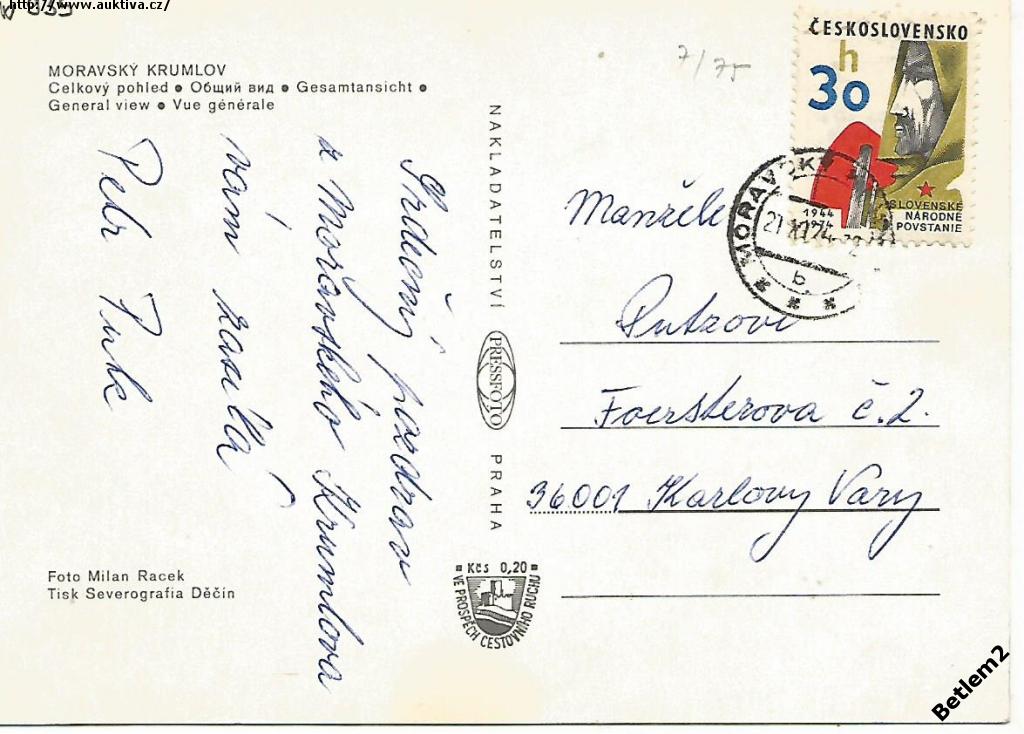 http://www.auktiva.cz/
MORAVSKÝ KRUMLOV
Celkový pohled • Общий вид • Gesamtansicht •
General view • Vue générale
Srdečný pozdrav
z Moravského Krumlova
vám zasílá
Petr
Foto Milan Racek
Tisk Severografia Děčín
NAKLADATELSTVÍ
PRESSFOTO
PRAHA
Kčs 0,20
VE PROSPĚCH CESTOVNÍHO RUCHU
7/75
ČESKOSLOVENSKO
30 h
1944
1974
SLOVENSKÉ
NÁRODNÉ
POVSTANIE
MORAVSK
b
Manžele
Putzovi
Foersterova č. 2.
36001 Karlovy Vary
Betlem2